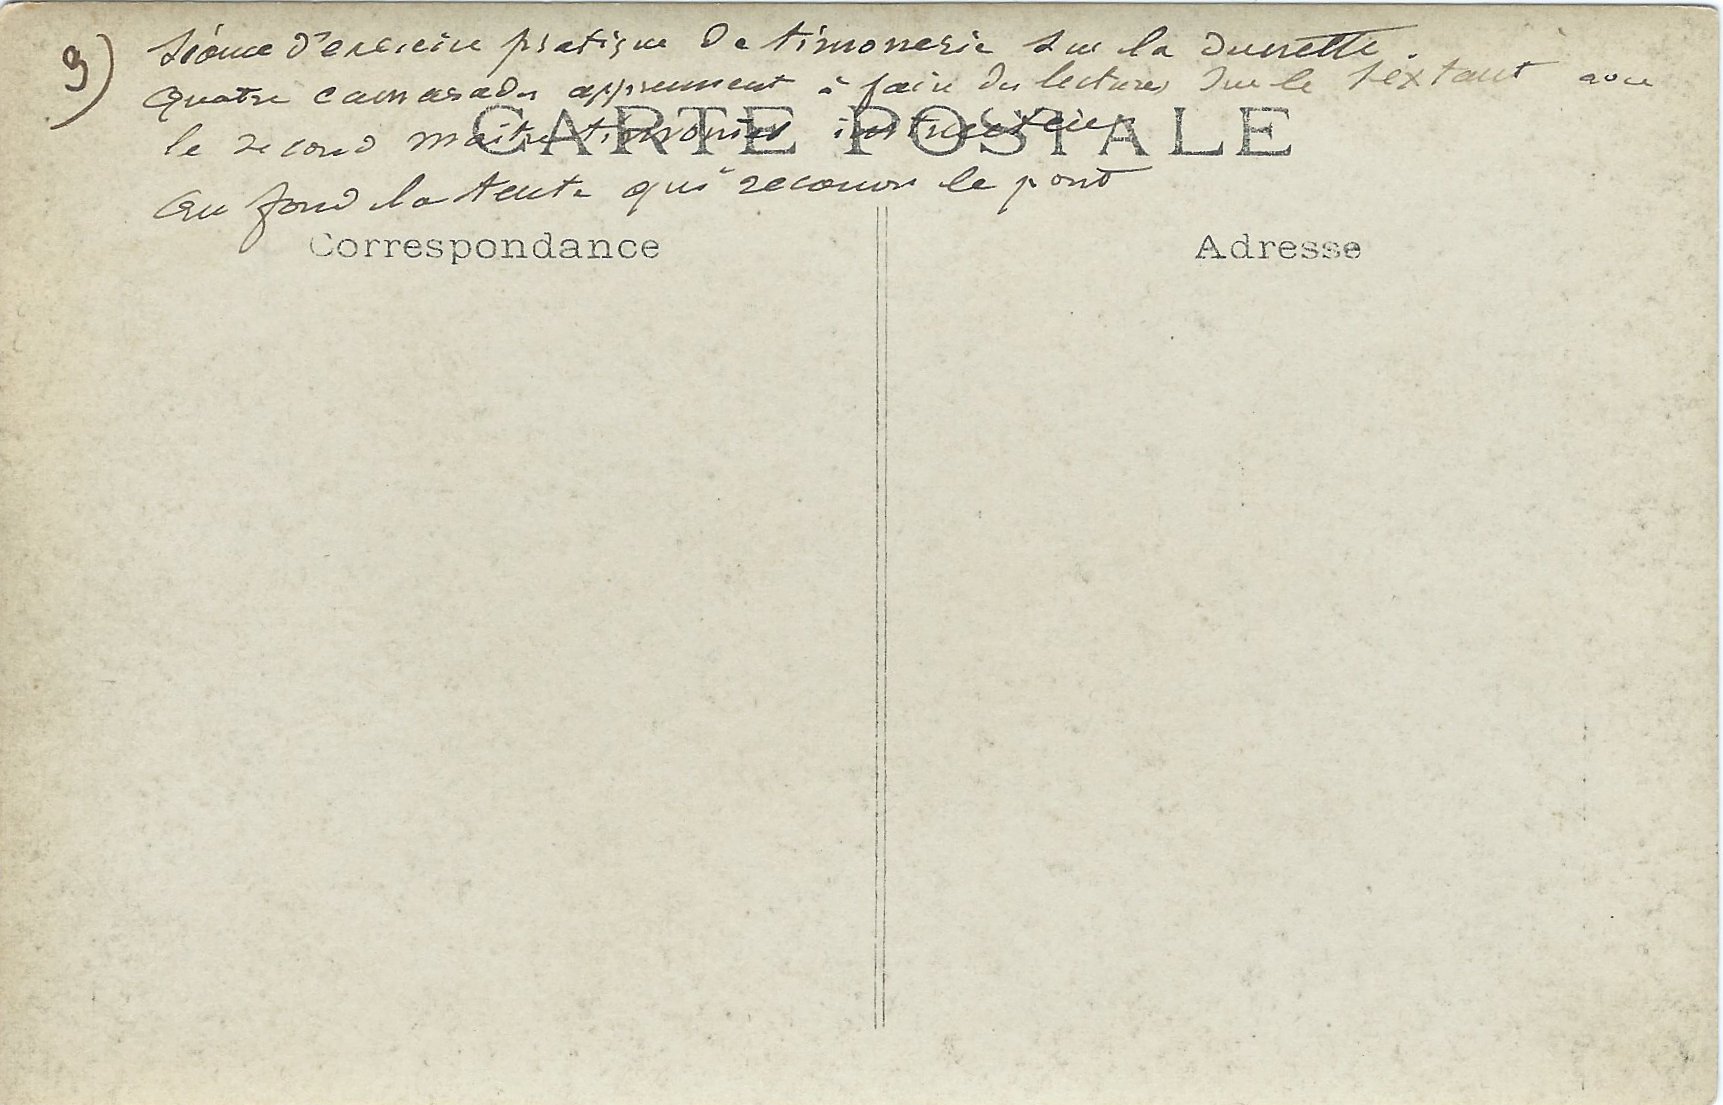 3) Séance d'exercice pratique de timonerie sur la dunette.
Quatre camarades apprennent à faire des lectures sur le sextant avec
le second maître timonier instructeur
CARTE POSTALE
Au fond la tente qui recouvre le pont
Correspondance
Adresse